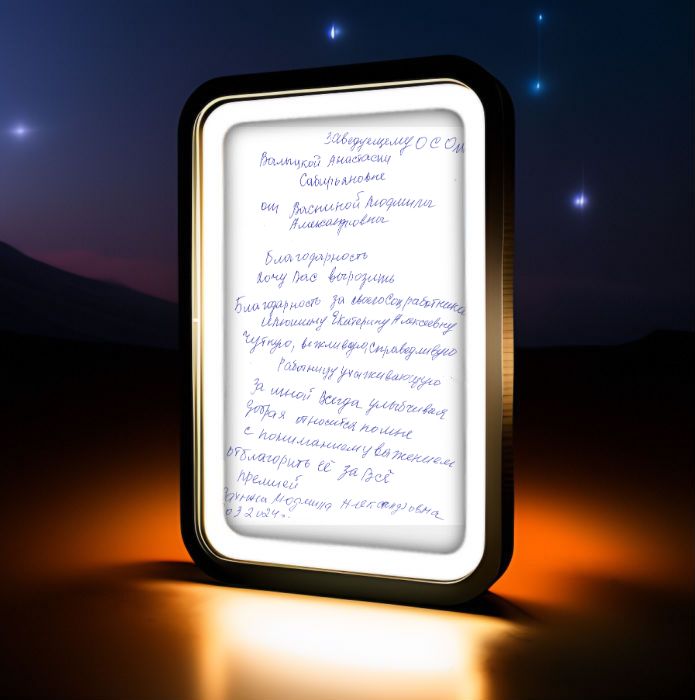 Заведующему ОСО
Анастасии
Сабирьяновне
от Людмила
Александровна
Благодарность
Хочу Вас вырозить
Благодарность за своего Соц, работника
Екатерину Алексеевну
Чуткую, вежливую, справедливую
Работницу ухаживающую
За мной Всегда улыбчивая
Добрая относится ко мне
с пониманием уважением
отблагорить её за Всё
премией
Людмила Александровна
03 2024г.